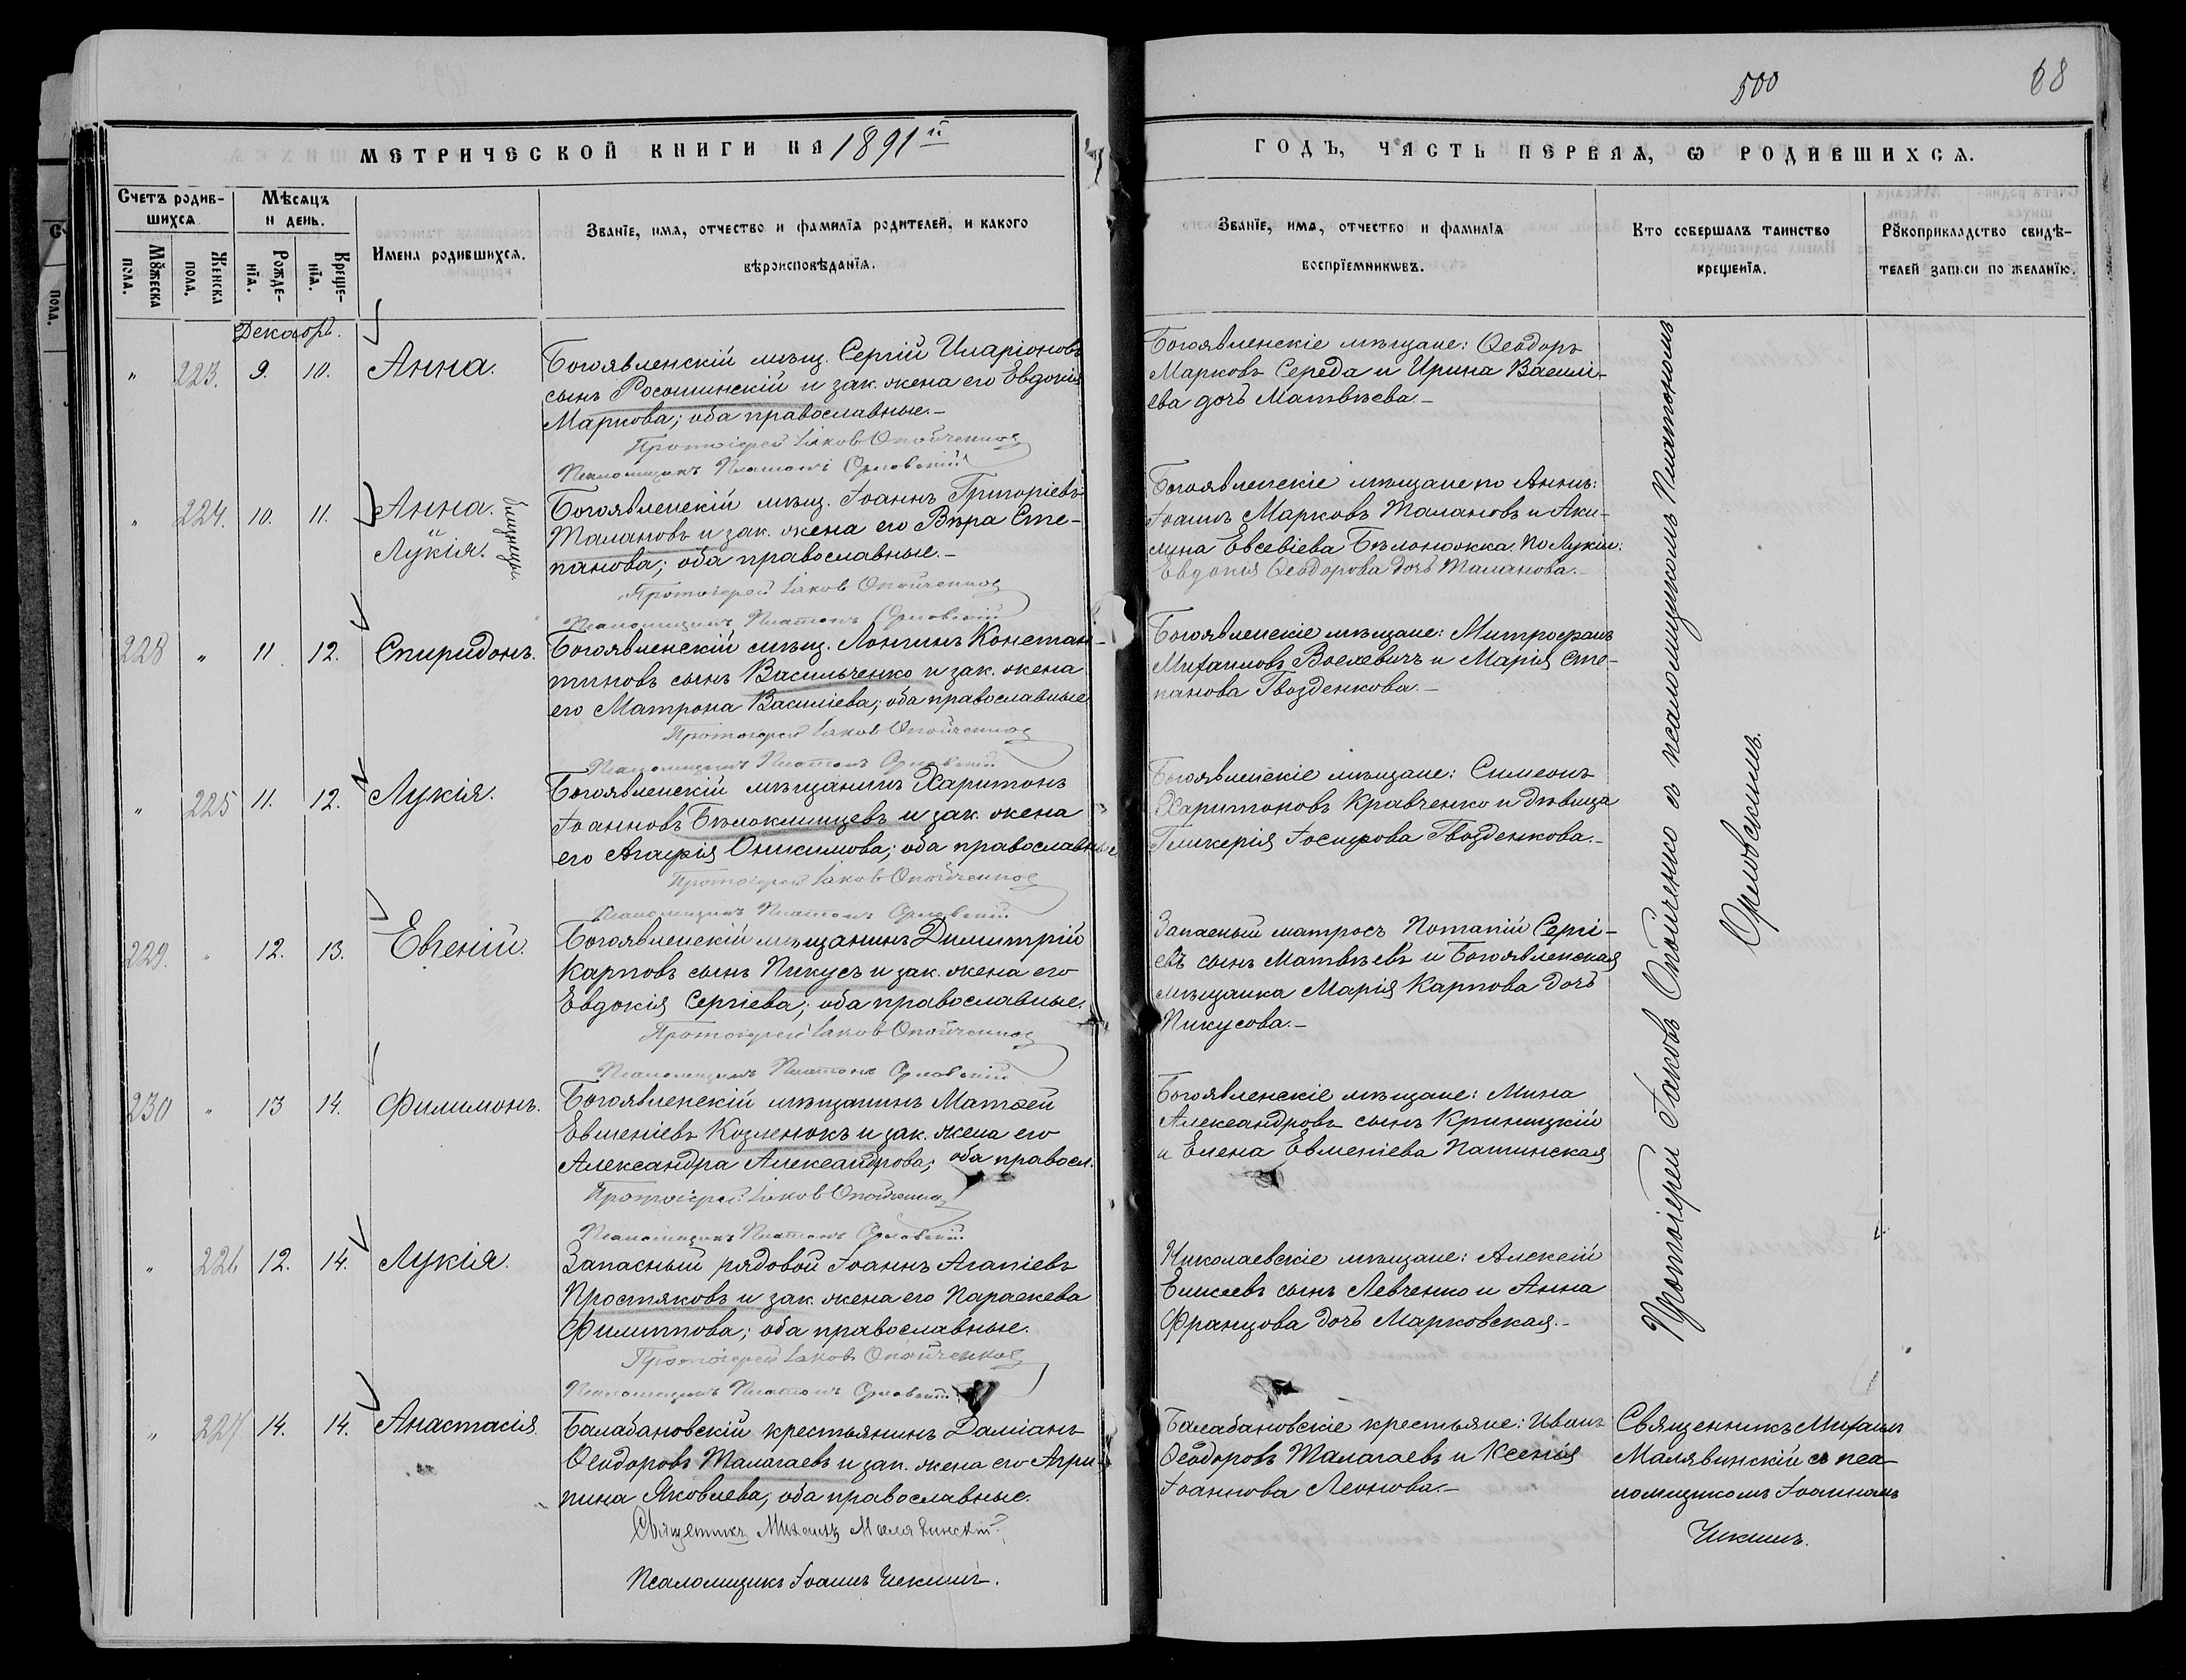 500
68
МЕТРИЧЕСКОЙ КНИГИ НА 1891й
ГОДЪ, ЧАСТЬ ПЕРВАѦ, Ѡ РОДИВШИХСѦ.
Счетъ родив-
шихсѧ
Мѣсѧцъ
и день.
Имена родившихсѧ.
Званїе, имѧ, отчество и фамилїѧ родителей, и какого
вѣроисповѣданїѧ.
Мꙋжеска
пола.
Женска
пола.
Рожде-
нїѧ.
Креще-
нїѧ.
Званїе, имѧ, отчество и фамилїѧ
воспрїемникѡвъ.
Кто совершалъ таинство
крещенїѧ.
Рꙋкоприкладство свидѣ-
телей записи по желанїю.
Декабрь.
" 223. 9. 10. Анна.
Богоявленскій мѣщ. Сергій Иларіоновъ
сынъ Росошинскій и зак. жена его Евдокія
Маркова; оба православные.-
Протоіерей Іаковъ Опойченко
Псаломщикъ Платонъ Орловскій
Богоявленскіе мѣщане: Ѳеодоръ
Марковъ Середа и Ирина Василі-
ева дочь Матвѣева-
" 224. 10. 11. Анна.
Лукія.
близнецы
Богоявленскій мѣщ. Іоаннъ Григоріевъ
Талановъ и зак. жена его Вѣра Сте-
панова; оба православные.-
Протоіерей Іаковъ Опойченко
Псаломщикъ Платонъ Орловскій
Богоявленскіе мѣщане по Аннѣ:
Іоаннъ Марковъ Талановъ и Аки-
лина Евсевіева Бѣлоножка. По Лукіи:
Евдокія Ѳеодорова дочь Таланова.-
228 " 11 12. Спиридонъ.
Богоявленскій мѣщ. Лонгинъ Констан-
тиновъ сынъ Васильченко и зак. жена
его Матрона Василіева; оба православные
Протоіерей Іаковъ Опойченко
Псаломщикъ Платонъ Орловскій
Богоявленскіе мѣщане: Митрофанъ
Михаиловъ и Марія Сте-
панова Гвозденкова.-
" 225 11. 12. Лукія.
Богоявленскій мѣщанинъ Харитонъ
Іоанновъ Бѣлоклинцевъ и зак. жена
его Агафія Онисимова; оба православные
Протоіерей Іаковъ Опойченко
Псаломщикъ Платонъ Орловскій
Богоявленскіе мѣщане: Симеонъ
Харитоновъ Кравченко и дѣвица
Гликерія Іосифова Гвозденкова.-
229. " 12. 13. Евгеній.
Богоявленскій мѣщанинъ Димитрій
Карповъ сынъ Пикусъ и зак. жена его
Евдокія Сергіева; оба православные.
Протоіерей Іаковъ Опойченко
Псаломщикъ Платонъ Орловскій
Запасный матросъ Потапій Сергі-
евъ сынъ Матвѣевъ и Богоявленская
мѣщанка Марія Карпова дочь
Пикусова.-
230 " 13 14. Филимонъ.
Богоявленскій мѣщанинъ Матѳей
Евменіевъ Козленокъ и зак. жена его
Александра Александрова; оба правосл.
Протоіерей Іаковъ Опойченко
Псаломщикъ Платонъ Орловскій
Богоявленскіе мѣщане: Мина
Александровъ сынъ Криницкій
и Елена Евменіева Патинская
" 226 12. 14. Лукія.
Запасный рядовой Іоаннъ Агапіевъ
Простяковъ и зак. жена его Параскева
Филиппова; оба православные.
Протоіерей Іаковъ Опойченко
Псаломщикъ Платонъ Орловскій
Николаевскіе мѣщане: Алексій
Елисеевъ сынъ Левченко и Анна
Францова дочь Марковская.-
Протоіерей Іаковъ Опойченко съ псаломщикомъ Платономъ
Орловскимъ.
" 227 14. 14. Анастасія.
Балабановскій крестьянинъ Даміанъ
Ѳеодоровъ Талагаевъ и зак. жена его Агри-
пина Яковлева; оба православные.
Священникъ Михаилъ Малявинскій
Псаломщикъ Іоаннъ Чекминъ.
Балабановскіе крестьяне: Иванъ
Ѳеодоровъ Талагаевъ и Ксенія
Іоаннова Леонова.-
Священникъ Михаилъ
Малявинскій съ пса-
ломщикомъ Іоанномъ